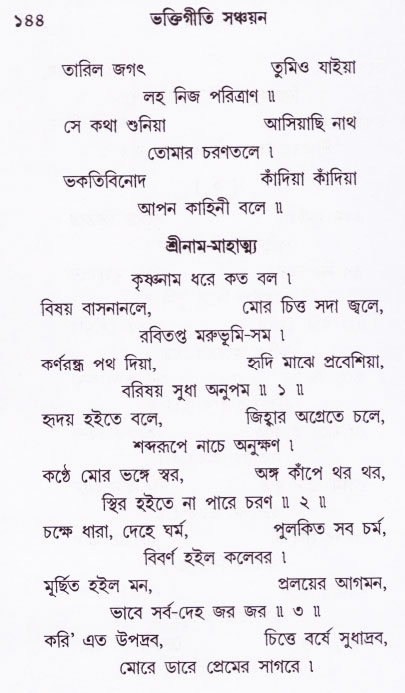 ১৪৪ ভক্তিগীতি সঞ্চয়ন
তারিল জগৎ তুমিও যাইয়া
লহ নিজ পরিত্রাণ ॥
সে কথা শুনিয়া আসিয়াছি নাথ
তোমার চরণতলে ।
ভকতিবিনোদ কাঁদিয়া কাঁদিয়া
আপন কাহিনী বলে ॥
শ্রীনাম-মাহাত্ম্য
কৃষ্ণনাম ধরে কত বল ।
বিষয় বাসনানলে, মোর চিত্ত সদা জ্বলে,
রবিতপ্ত মরুভূমি-সম ।
কর্ণরন্ধ্র পথ দিয়া, হৃদি মাঝে প্রবেশিয়া,
বরিষয় সুধা অনুপম ॥ ১ ॥
হৃদয় হইতে বলে, জিহ্বার অগ্রেতে চলে,
শব্দরূপে নাচে অনুক্ষণ ।
কণ্ঠে মোর ভঙ্গে স্বর, অঙ্গ কাঁপে থর থর,
স্থির হইতে না পারে চরণ ॥ ২ ॥
চক্ষে ধারা, দেহে ঘর্ম, পুলকিত সব চর্ম,
বিবর্ণ হইল কলেবর ।
মূর্ছিত হইল মন, প্রলয়ের আগমন,
ভাবে সর্ব-দেহ জর জর ॥ ৩ ॥
করি' এত উপদ্রব, চিত্তে বর্ষে সুধাদ্রব,
মোরে ডারে প্রেমের সাগরে ।